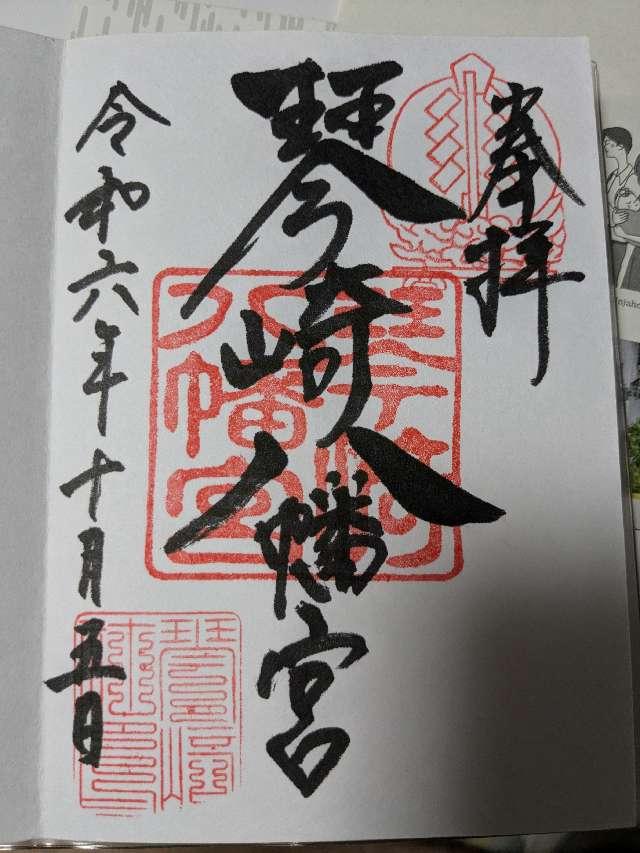 奉拝
琴崎八幡宮
令和六年十月五日
八幡宮
njahe